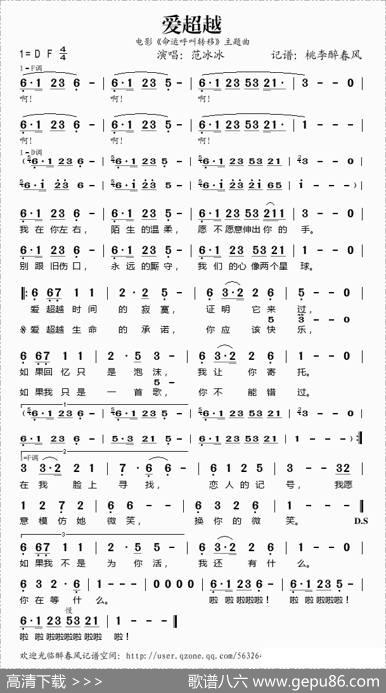 爱超越
电影《命运呼叫转移》主题曲
1=D F 4/4 演唱：范冰冰 记谱：桃李醉春风
1=F调
6·1 23 6 - | 6·1 23 6 - | 6·1 23 53 21· | 3 - - 0 |
啊！ 啊！ 啊！
6·1 23 6 - | 6·1 23 6 - | 6·1 23 53 21· | 6 - - 0 |
啊！ 啊！ 啊！
1=D调
6·1 23 6 | 6·1 23 6 | 6·1 23 53 21 | 3 - - - |
6·1 23 6 | 6·1 23 6 | 6·1 23 21 65 | 1 - - - |
6·1 23 6 - | 6·1 23 6 - | 6·1 23 53 211 | 3 - - 0 |
我在你左右， 陌生的温柔， 愿不愿意伸出你的 手。
6·1 23 6 - | 6·1 23 6 - | 6·1 23 53 21 | 6 - - 0 |
别跟旧伤口， 永远的厮守， 我们的心像两个星 球。
6 67 1 1 | 2·2 5 - | 6 3·2 2 6 | 5 - - 0 |
爱超越时间 的寂寞， 证明它来 过，
5 3 - 0
※爱超越生命 的承诺， 你应该快 乐，
6 67 1 1 | 2·5 3 - | 6 3·2 2 6 | 1 - - 0 |
如果回忆只 是泡沫， 我让你寄 托。
5 -
如果我只是 一首歌， 你不能错 过。
1
6·1 23 6 | 6·1 23 6 | 6·1 23 53 21 | 3 - - - |
6·1 23 6 | 5·3 21 5 | 6·1 23 53 21 | 1 - - - :|
2
1=F调
3 3·2 2 1 | 7·6 6 - | 1 7 6 5 | 3 - - 32 |
在我脸上 寻找， 恋人的记 号，我愿
1 2 7 2 | 1 6 2 - | 6 3 2 6 | 6 - - 0 |
意模仿她 微笑， 换你的微 笑。 D.S
3
6 67 1 1 | 2·5 3 - | 6 3·2 2 6 | 1 - - 0 |
如果我不是 为你活， 我还有什 么。
6 3 2 6 | 1 - - - | 0 0 0 0 | 6·1 23 6 - | 6·1 23 6 - |
你在等什 么。 啦 啦啦啦啦！ 啦 啦啦啦啦！
慢
6·1 23 53 21 | 1 - - - ||
啦 啦啦啦啦啦啦 啦！
欢迎光临醉春风记谱空间：http://user.qzone.qq.com/56326
高清下载 >>> 歌谱八六 www.gepu86.com